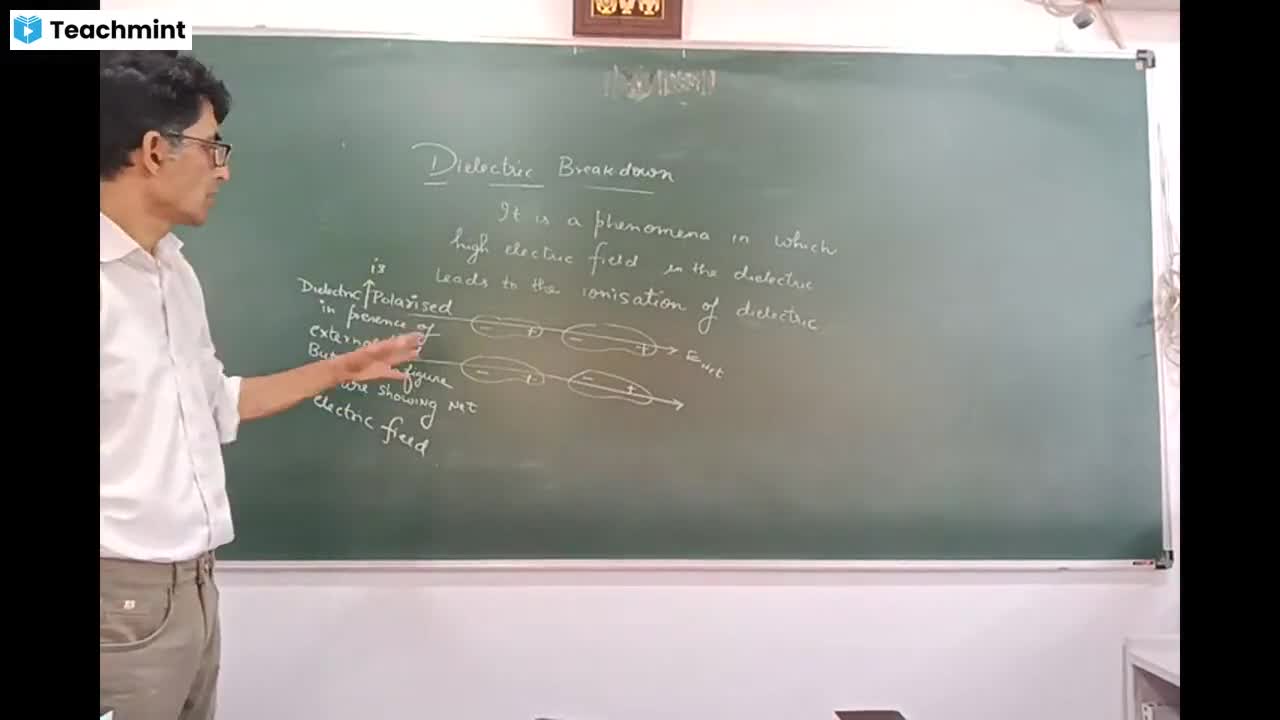 Teachmint
Dielectric Breakdown
It is a phenomena in which
high electric field in the dielectric
leads to the ionisation of dielectric
is
Dielectric Polarised
in presence of
external
But figure
are showing Net
electric field
- + - +
E net
- + - +